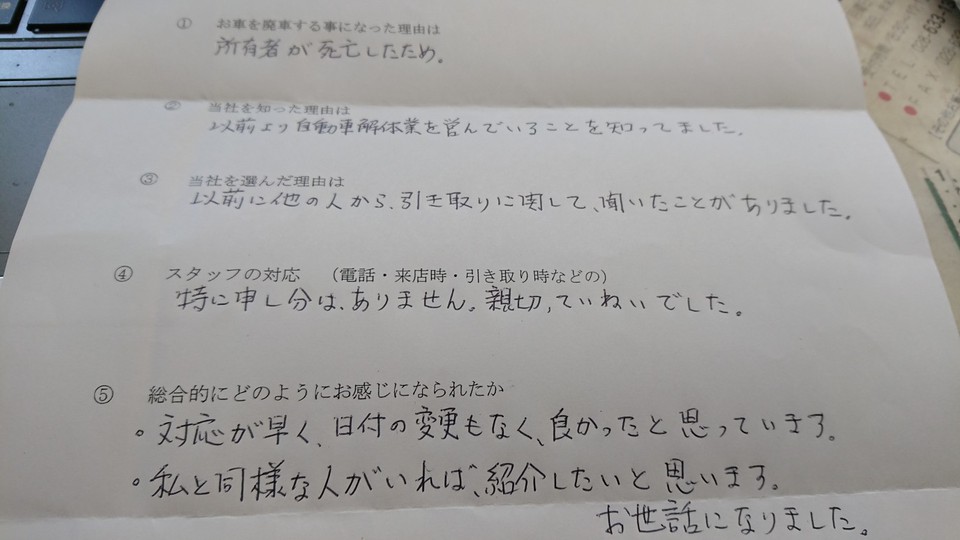 ① お車を廃車する事になった理由は
所有者が死亡したため。
② 当社を知った理由は
以前より自動車解体業を営んでいることを知ってました。
③ 当社を選んだ理由は
以前に他の人から、引き取りに関して、聞いたことがありました。
④ スタッフの対応 （電話・来店時・引き取り時などの）
特に申し分は、ありません。親切、ていねいでした。
⑤ 総合的にどのようにお感じになられたか
。対応が早く、日付の変更もなく、良かったと思っています。
。私と同様な人がいれば、紹介したいと思います。
お世話になりました。
TEL
FAX